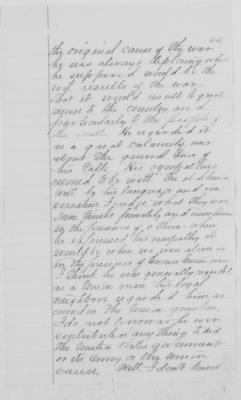 the original cause of the war
he was always deploring what
he supposed would be the
evil results of the war
that it would result to great
injury to the country and
particularly to the people of
the south. He regarded it
as a great calamity, was
about the general tenor of
his talk. His sympathies
seemed to be with the
Well by his language and con-
versation I judge what they were
some times privately and sometimes
in the presence of others when
he expressed his sympathy it
would be when we were alone or
in the presence of known Union men
I think he was generally regarded
as a Union man his loyal
neighbors regarded him as
on the Union question
I do not know as he ever
contributed any thing to aid
the United States government
or its army or the Union
cause, Well I don't know